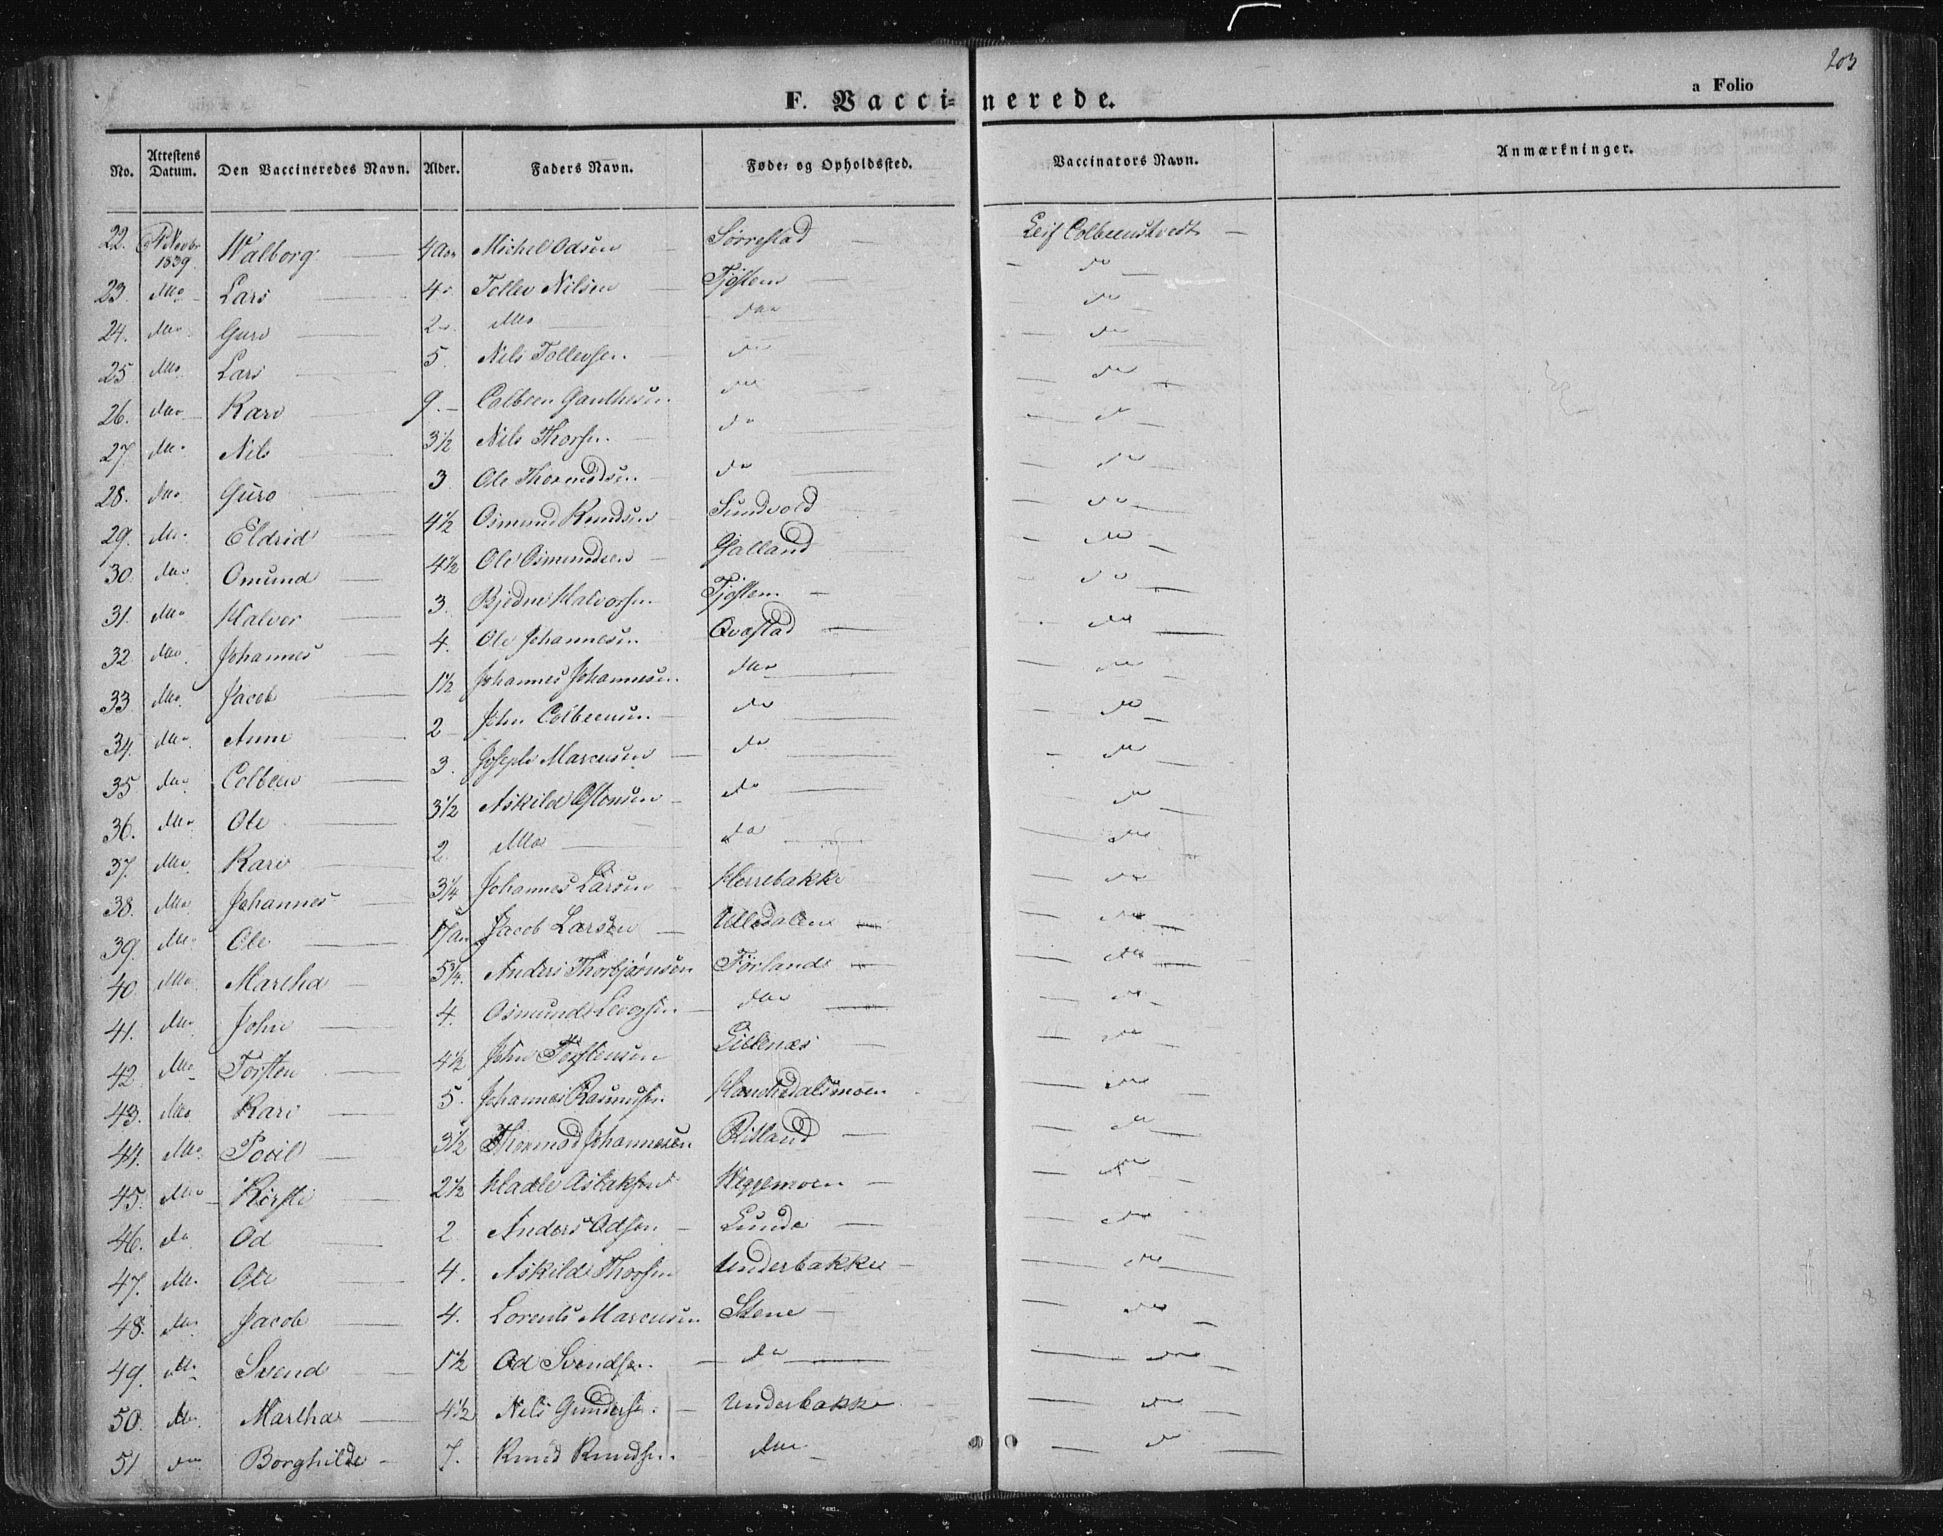 203
F. Vaccinerede.
a Folio
No. Attestens Datum. Den Vaccineredes Navn. Alder. Faders Navn. Føde- og Opholdssted. Vaccinators Navn. Anmærkninger.
22. Novbr 1839 Walborg 4 Aar Michel Odsen Sørrestad Leif Colbeenstvedt
23. do Lars 4 Tollev Nilsen Tjosten do
24. do Guro 2 do do do
25 do Lars 5. Nils Tollevsen do do
26. do Kari 9. Colbeen Gunthesen do do
27 do Nils 3½ Nils Thorsen do do
28. do Guro 3 Ole Thormodsen do do
29. do Eldrid 4½ Osmund Knudsen Sundvold do
30. do Omund 4½ Ole Osmundsen Galland do
31. do Halvor 3. Bjedne Halvorsen Tjosten do
32 do Johannes 4. Ole Johannesen Qvastad do
33 do Jacob 1½ Johannes Johannesen do do
34. do Anne 2 John Colbeensen do do
35 do Colbeen 3. Joseph Marcusen do do
36. do Ole 3½ Askild Ostensen do do
37. do Kari 2. do do do
38. do Johannes 3¼ Johannes Larsen Herrebakke do
39. do Ole Jacob Larsen Ulledalen do
40. do Martha 5¼. Anders Thorbjørnsen Førland do
41. do John 4. Osmund do do
42. do Torsten 4½ John Torstensen Gillenæs do
43. do Kari 5. Johannes Rasmusen do
44. do Poul 3½ Thormod Johannesen Risland do
45. do Kirsti 2½ Hadle Aslaksen Heggemoen do
46. do Od 2 Anders Odsen Lunde do
47. do Ole 4. Askild Thorsen Underbakke do
48. do Jacob 4. Lorents Marcusen Stene do
49. do Svend 1½ Od Svendsen. do do
50. do Martha 4½ Nils Gundersen. Underbakke do
51 do Borghilde 7. Knud Knudsen. do do